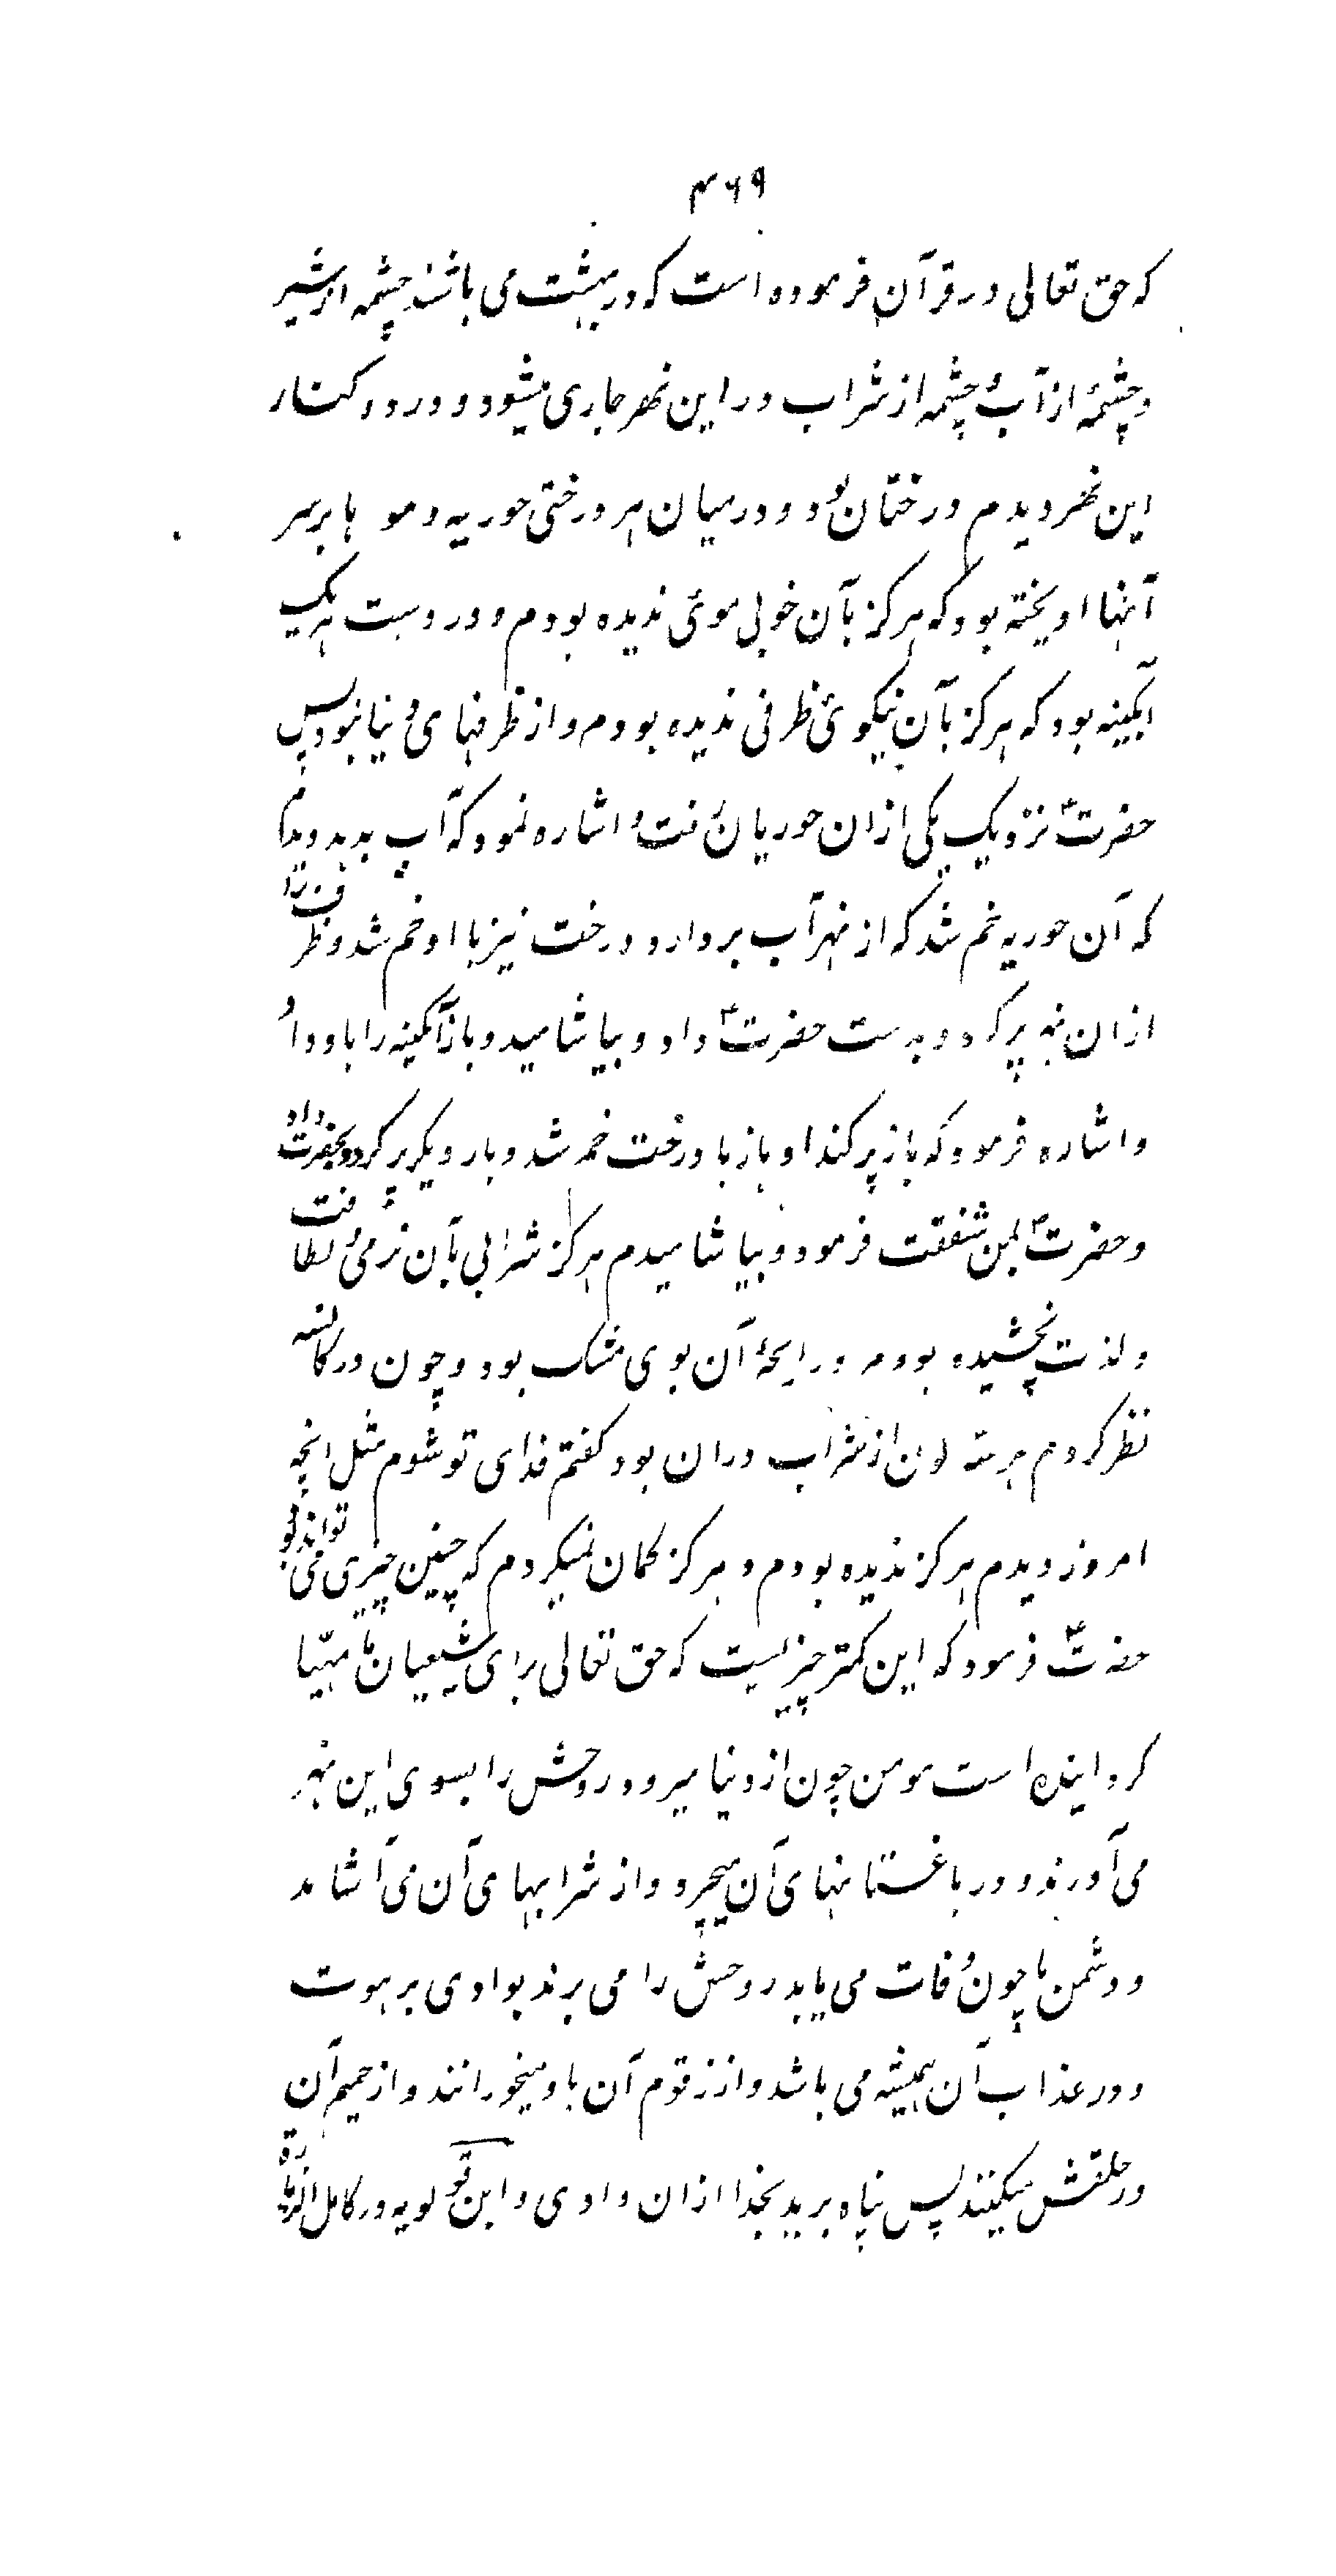 ۴۶۹
که حق تعالی در قرآن فرموده است که در بهشت می باشند چشمه از شیر
و چشمهٔ از آب و چشمه از شراب در این نهر جاری میشود و در دو کنار
این نهر دیدم درختان بود و در میان هر درختی حوریه و مو ها بر سر
آنها اویخته بود که هرکز بآن خوبی موئی ندیده بودم و در دست هر یک
آبکینه بود که هرکز بآن نیکوئی ظرفی ندیده بودم و از ظرفهای دنیا نبود پس
حضرتؑ نزدیک یکی ازان حوریان رفت و اشاره نمود که آب بدید دیدم
که آن حوریه خم شد که از نهر آب بردارد درخت نیز با او خم شد و ظرف را
ازان نهر پر کرد و بدست حضرتؑ داد و بیاشامید و باز آبکینه را باو داد
و اشاره فرمود که باز پر کند او باز با درخت خم شد و بار دیکر پر کرد و بحضرت داد
و حضرتؑ بمن شفقت فرمود و بیاشامیدم هرکز شرابی بآن نرمی و لطافت
و لذت نچشیده بودم و رایحهٔ آن بوی مشک بود و چون در کاسه
نظر کردم هر سه لون از شراب دران بود کفتم فدای تو شوم مثل انچه
امروز دیدم هرکز ندیده بودم و هرکز کمان نمیکردم که چنین چیزی می تواند بود
حضرتؑ فرمود که این کمتر چیزیست که حق تعالی برای شیعیان ما مهیّا
کردانیده است مومن چون از دنیا میرود روحش را بسوی این نهر
می آورند و در باغستانهای آن میچرد و از شرابهای آن می آشامد
و دشمن ما چون وفات می یابد روحش را می برند بوادی برهوت
و در عذاب آن همیشه می باشد و از زقوم آن باو میخورانند و از حمیم آن
در حلقش میکنند پس پناه برید بخدا ازان وادی و ابن قولویه در کامل الزیاره